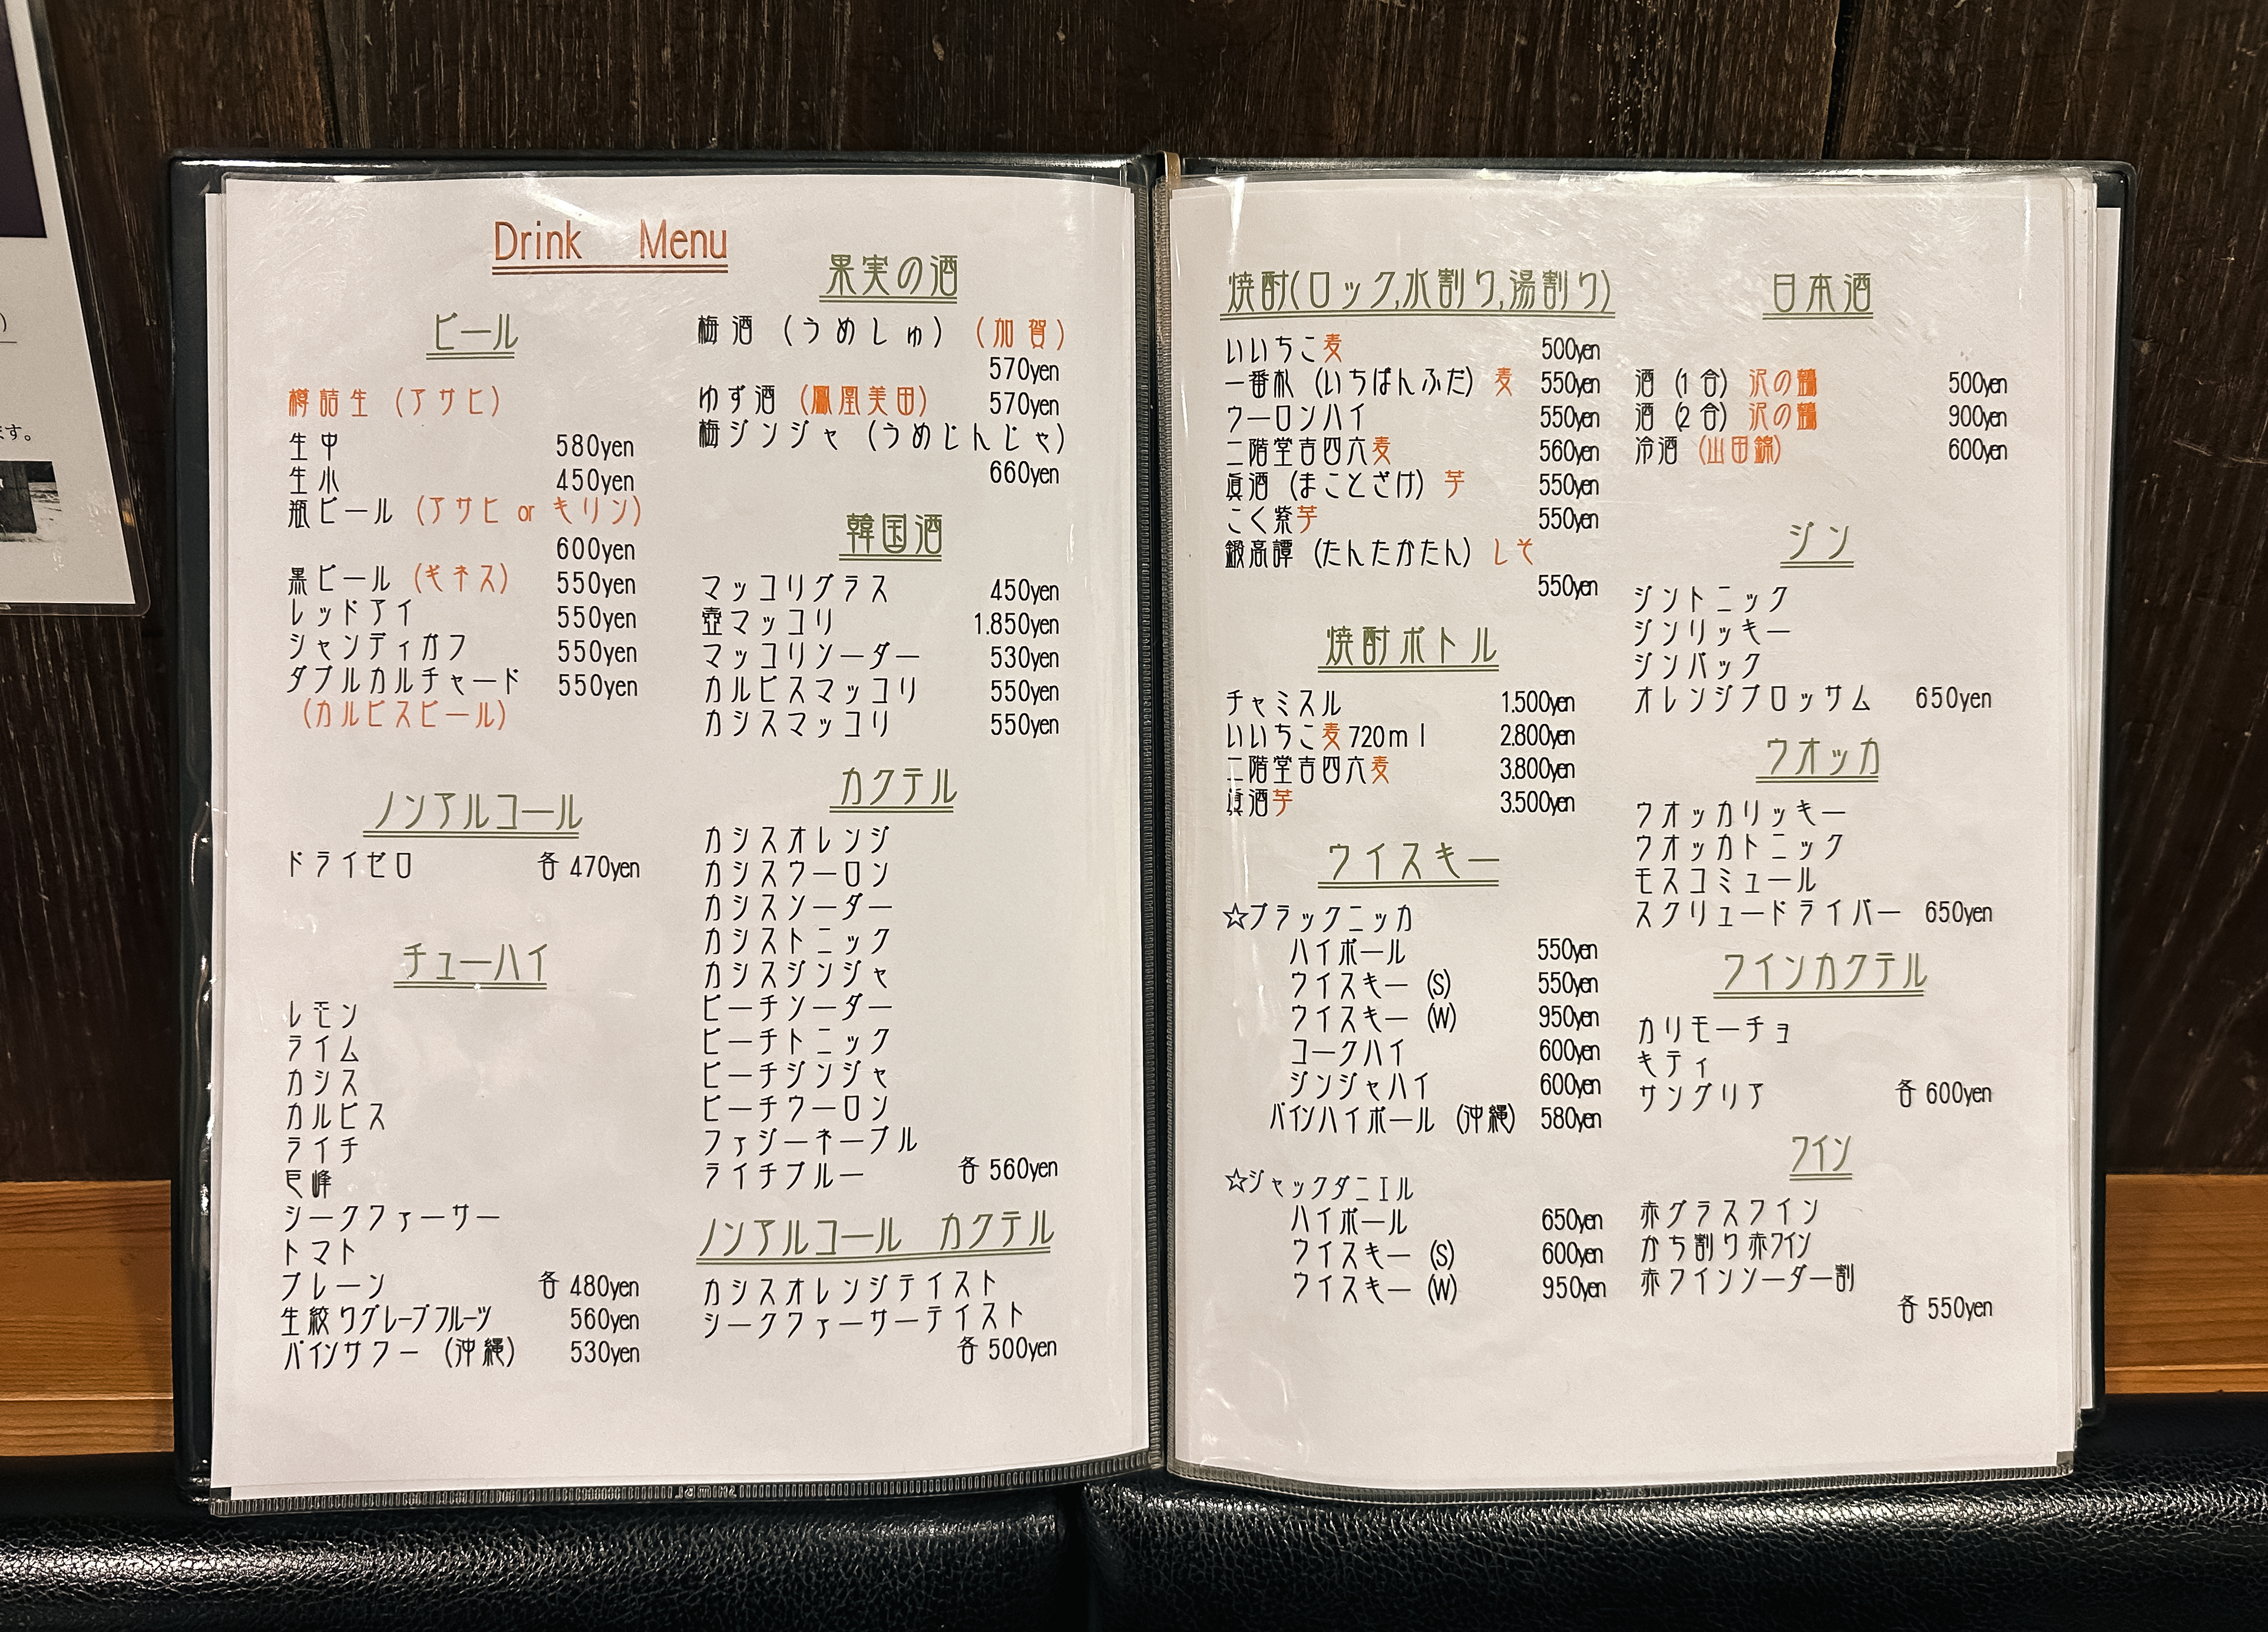 Drink Menu
ビール
樽詰生 (アサヒ)
生中 580yen
生小 450yen
瓶ビール (アサヒ or キリン)
600yen
黒ビール (ギネス) 550yen
レッドアイ 550yen
シャンディガフ 550yen
ダブルカルチャード 550yen
(カルピスビール)
ノンアルコール
ドライゼロ 各 470yen
チューハイ
レモン
ライム
カシス
カルピス
ライチ
巨峰
シークファーサー
トマト
プレーン 各 480yen
生絞りグレープフルーツ 560yen
パインサワー (沖縄) 530yen
果実の酒
梅酒 (うめしゅ) (加賀)
570yen
ゆず酒 (鳳凰美田) 570yen
梅ジンジャ (うめじんじゃ)
660yen
韓国酒
マッコリグラス 450yen
壺マッコリ 1.850yen
マッコリソーダー 530yen
カルピスマッコリ 550yen
カシスマッコリ 550yen
カクテル
カシスオレンジ
カシスウーロン
カシスソーダー
カシストニック
カシスジンジャ
ピーチソーダー
ピーチトニック
ピーチジンジャ
ピーチウーロン
ファジーネーブル
ライチブルー 各 560yen
ノンアルコール カクテル
カシスオレンジテイスト
シークファーサーテイスト
各 500yen
焼酎(ロック,水割り,湯割り)
いいちこ麦 500yen
一番札 (いちばんふだ) 麦 550yen
ウーロンハイ 550yen
二階堂吉四六麦 560yen
眞酒 (まことざけ) 芋 550yen
こく紫芋 550yen
鍛高譚 (たんたかたん) しそ
550yen
焼酎ボトル
チャミスル 1.500yen
いいちこ麦720ml 2.800yen
二階堂吉四六麦 3.800yen
眞酒芋 3.500yen
ウイスキー
☆ブラックニッカ
ハイボール 550yen
ウイスキー (S) 550yen
ウイスキー (W) 950yen
コークハイ 600yen
ジンジャハイ 600yen
パインハイボール (沖縄) 580yen
☆ジャックダニエル
ハイボール 650yen
ウイスキー (S) 600yen
ウイスキー (W) 950yen
日本酒
酒 (1合) 沢の鶴 500yen
酒 (2合) 沢の鶴 900yen
冷酒 (山田錦) 600yen
ジン
ジントニック
ジンリッキー
ジンバック
オレンジブロッサム 650yen
ウオッカ
ウオッカリッキー
ウオッカトニック
モスコミュール
スクリュードライバー 650yen
ワインカクテル
カリモーチョ
キティ
サングリア 各 600yen
ワイン
赤グラスワイン
かち割り赤ワイン
赤ワインソーダー割
各 550yen
ます。